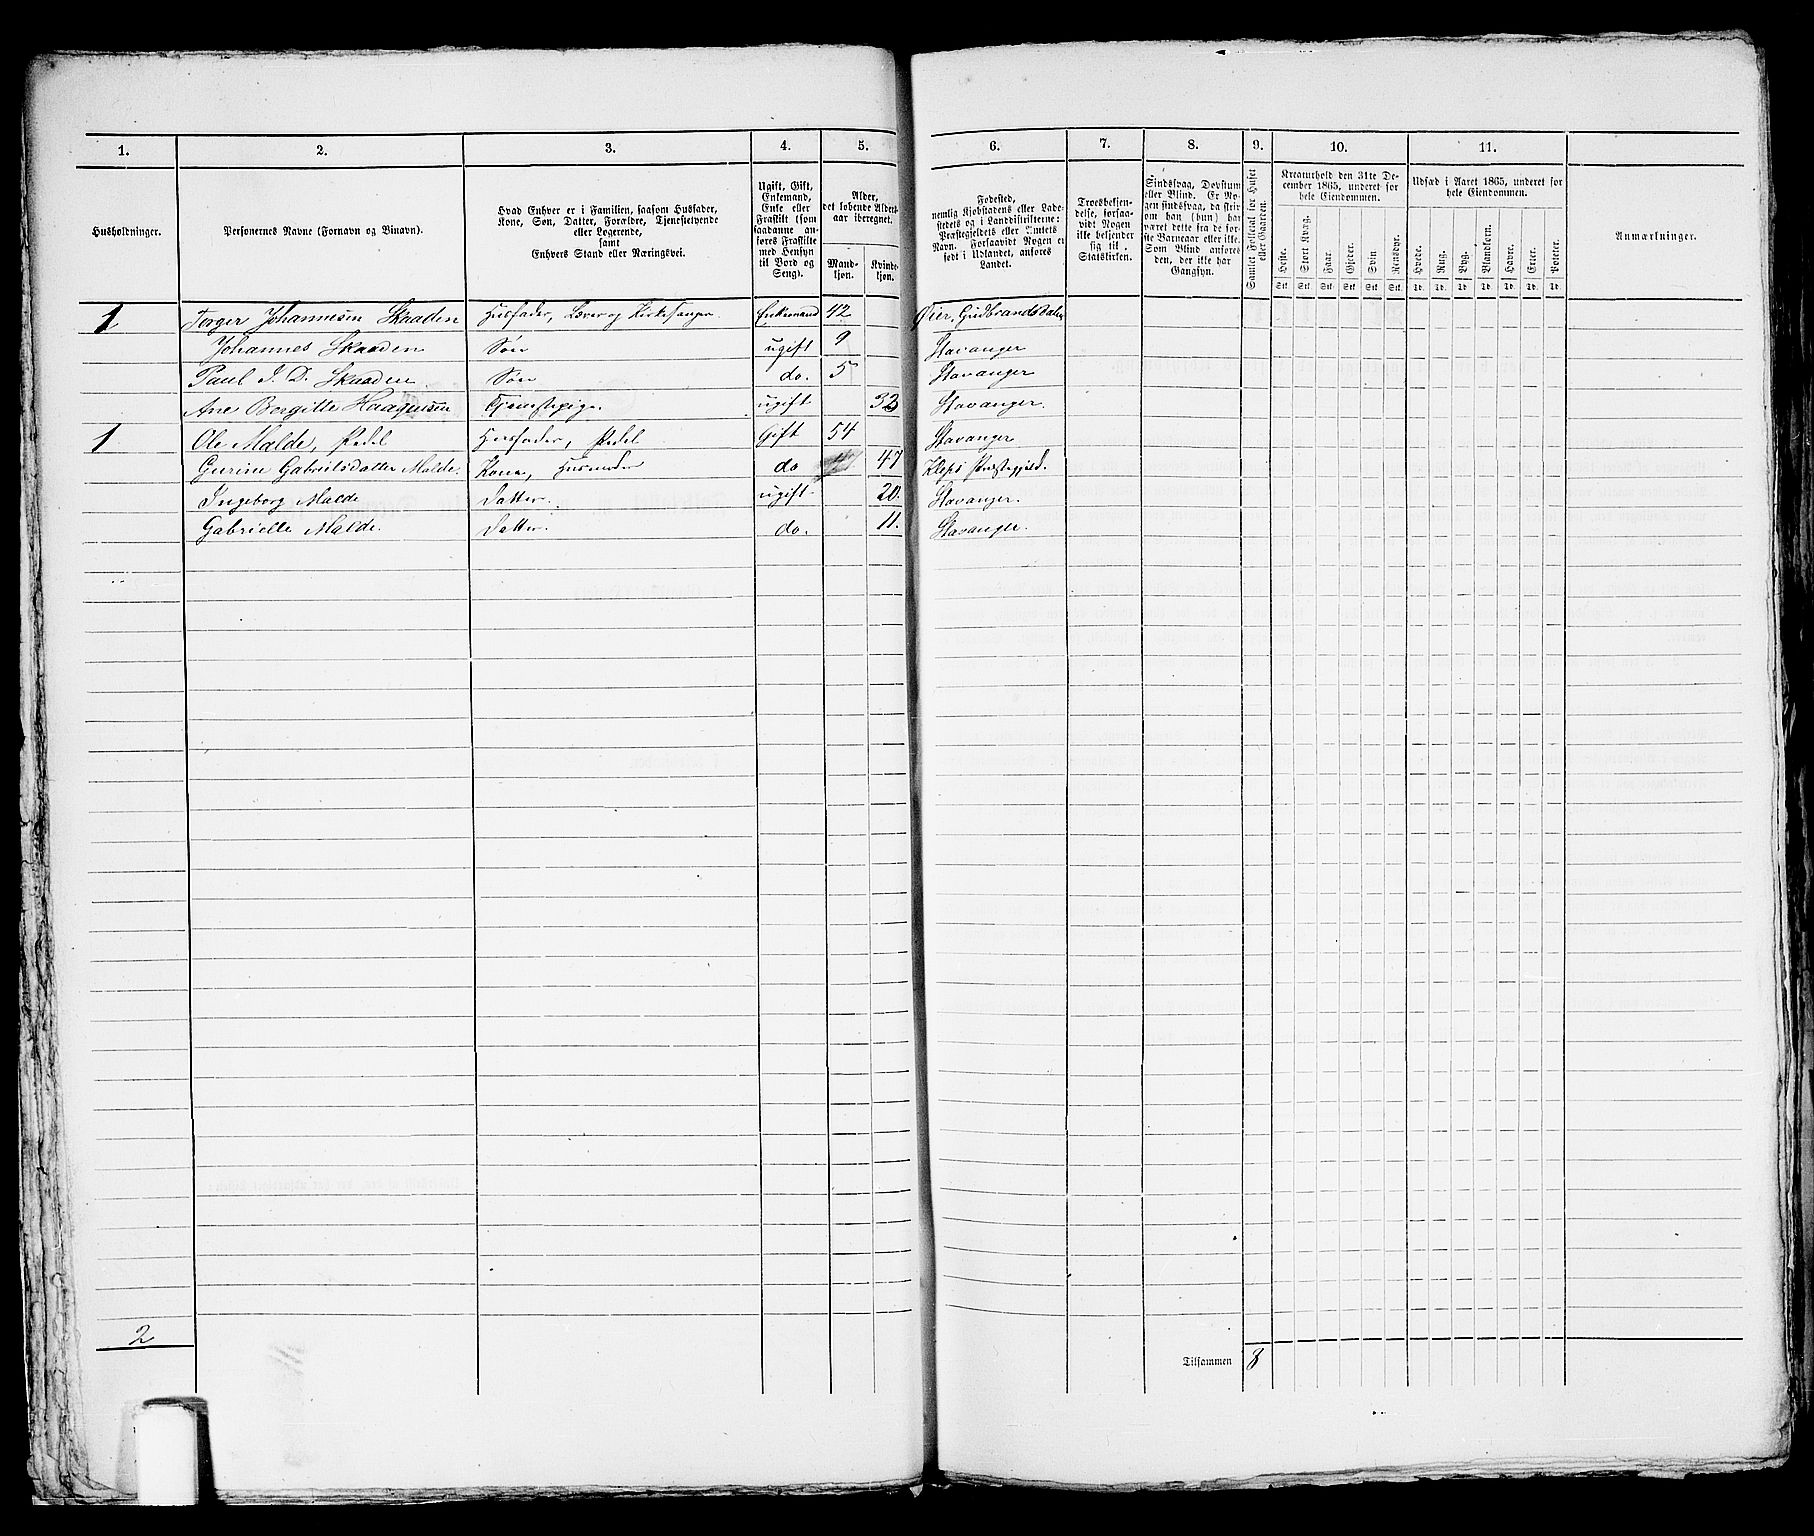 1. 2. 3. 4. 5. 6. 7. 8. 9. 10. 11.
Husholdninger.
Personernes Navne (Fornavn og Binavn).
Hvad Enhver er i Familien, saasom Husfader,
Kone, Søn, Datter, Forældre, Tjenestetyende
eller Logerende,
samt
Enhvers Stand eller Næringsvei.
Ugift, Gift,
Enkemand,
Enke eller
Fraskilt (som
saadanne an-
føres Fraskilte
med Hensyn
til Bord og
Seng).
Alder,
det løbende Alders-
aar iberegnet.
Mand-
kjøn.
Kvinde-
kjøn.
Fødested,
nemlig Kjøbstadens eller Lade-
stedets og i Landdistrikterne:
Præstegjeldets eller Amtets
Navn. Forsaavidt Nogen er
født i Udlandet, anføres
Landet.
Troesbekjen-
delse, forsaa-
vidt Nogen
ikke bekjender
sig til
Statskirken.
Sindssvag, Døvstum
eller Blind. Er No-
gen sindssvag, da skri-
ves om han (hun) har
været dette fra de før-
ste Barneaar eller ikke.
Som Blind anføres
den, der ikke har
Gangsyn.
Samlet Folketal for Huset
eller Gaarden.
Kreaturhold den 31te De-
cember 1865, underet for
hele Eiendommen.
Heste. Stort Kvæg. Faar. Gjeder. Svin Rensdyr.
Stk. Stk. Stk. Stk. Stk. Stk.
Udsæd i Aaret 1865, underet for
hele Eiendommen.
Hvede. Rug. Byg. Blandkorn. Havre. Erter. Poteter.
Td. Td. Td. Td. Td. Td. Td.
Anmærkninger.
1 Torger Johannesen Skaaden Husfader, Lærer og Kirkesanger. Enkemand 42 Øier, Gudbrandsdalen
Johannes Skaaden Søn ugift 9 Stavanger
Paul J. D. Skaaden. Søn do. 5 Stavanger
Ane Bergitte Haagensen Tjenestepige. ugift 32 Stavanger.
1 Ole Malde, Pedel Husfader, Pedel Gift 54 Stavanger
Gurine Gabrielsdatter Malde. Kone, Husmoder do 47 Kleps Præstegjæld.
Ingeborg Malde Datter. ugift 20. Stavanger.
Gabrielle Malde. Datter. do. 11. Stavanger.
2 Tilsammen 8